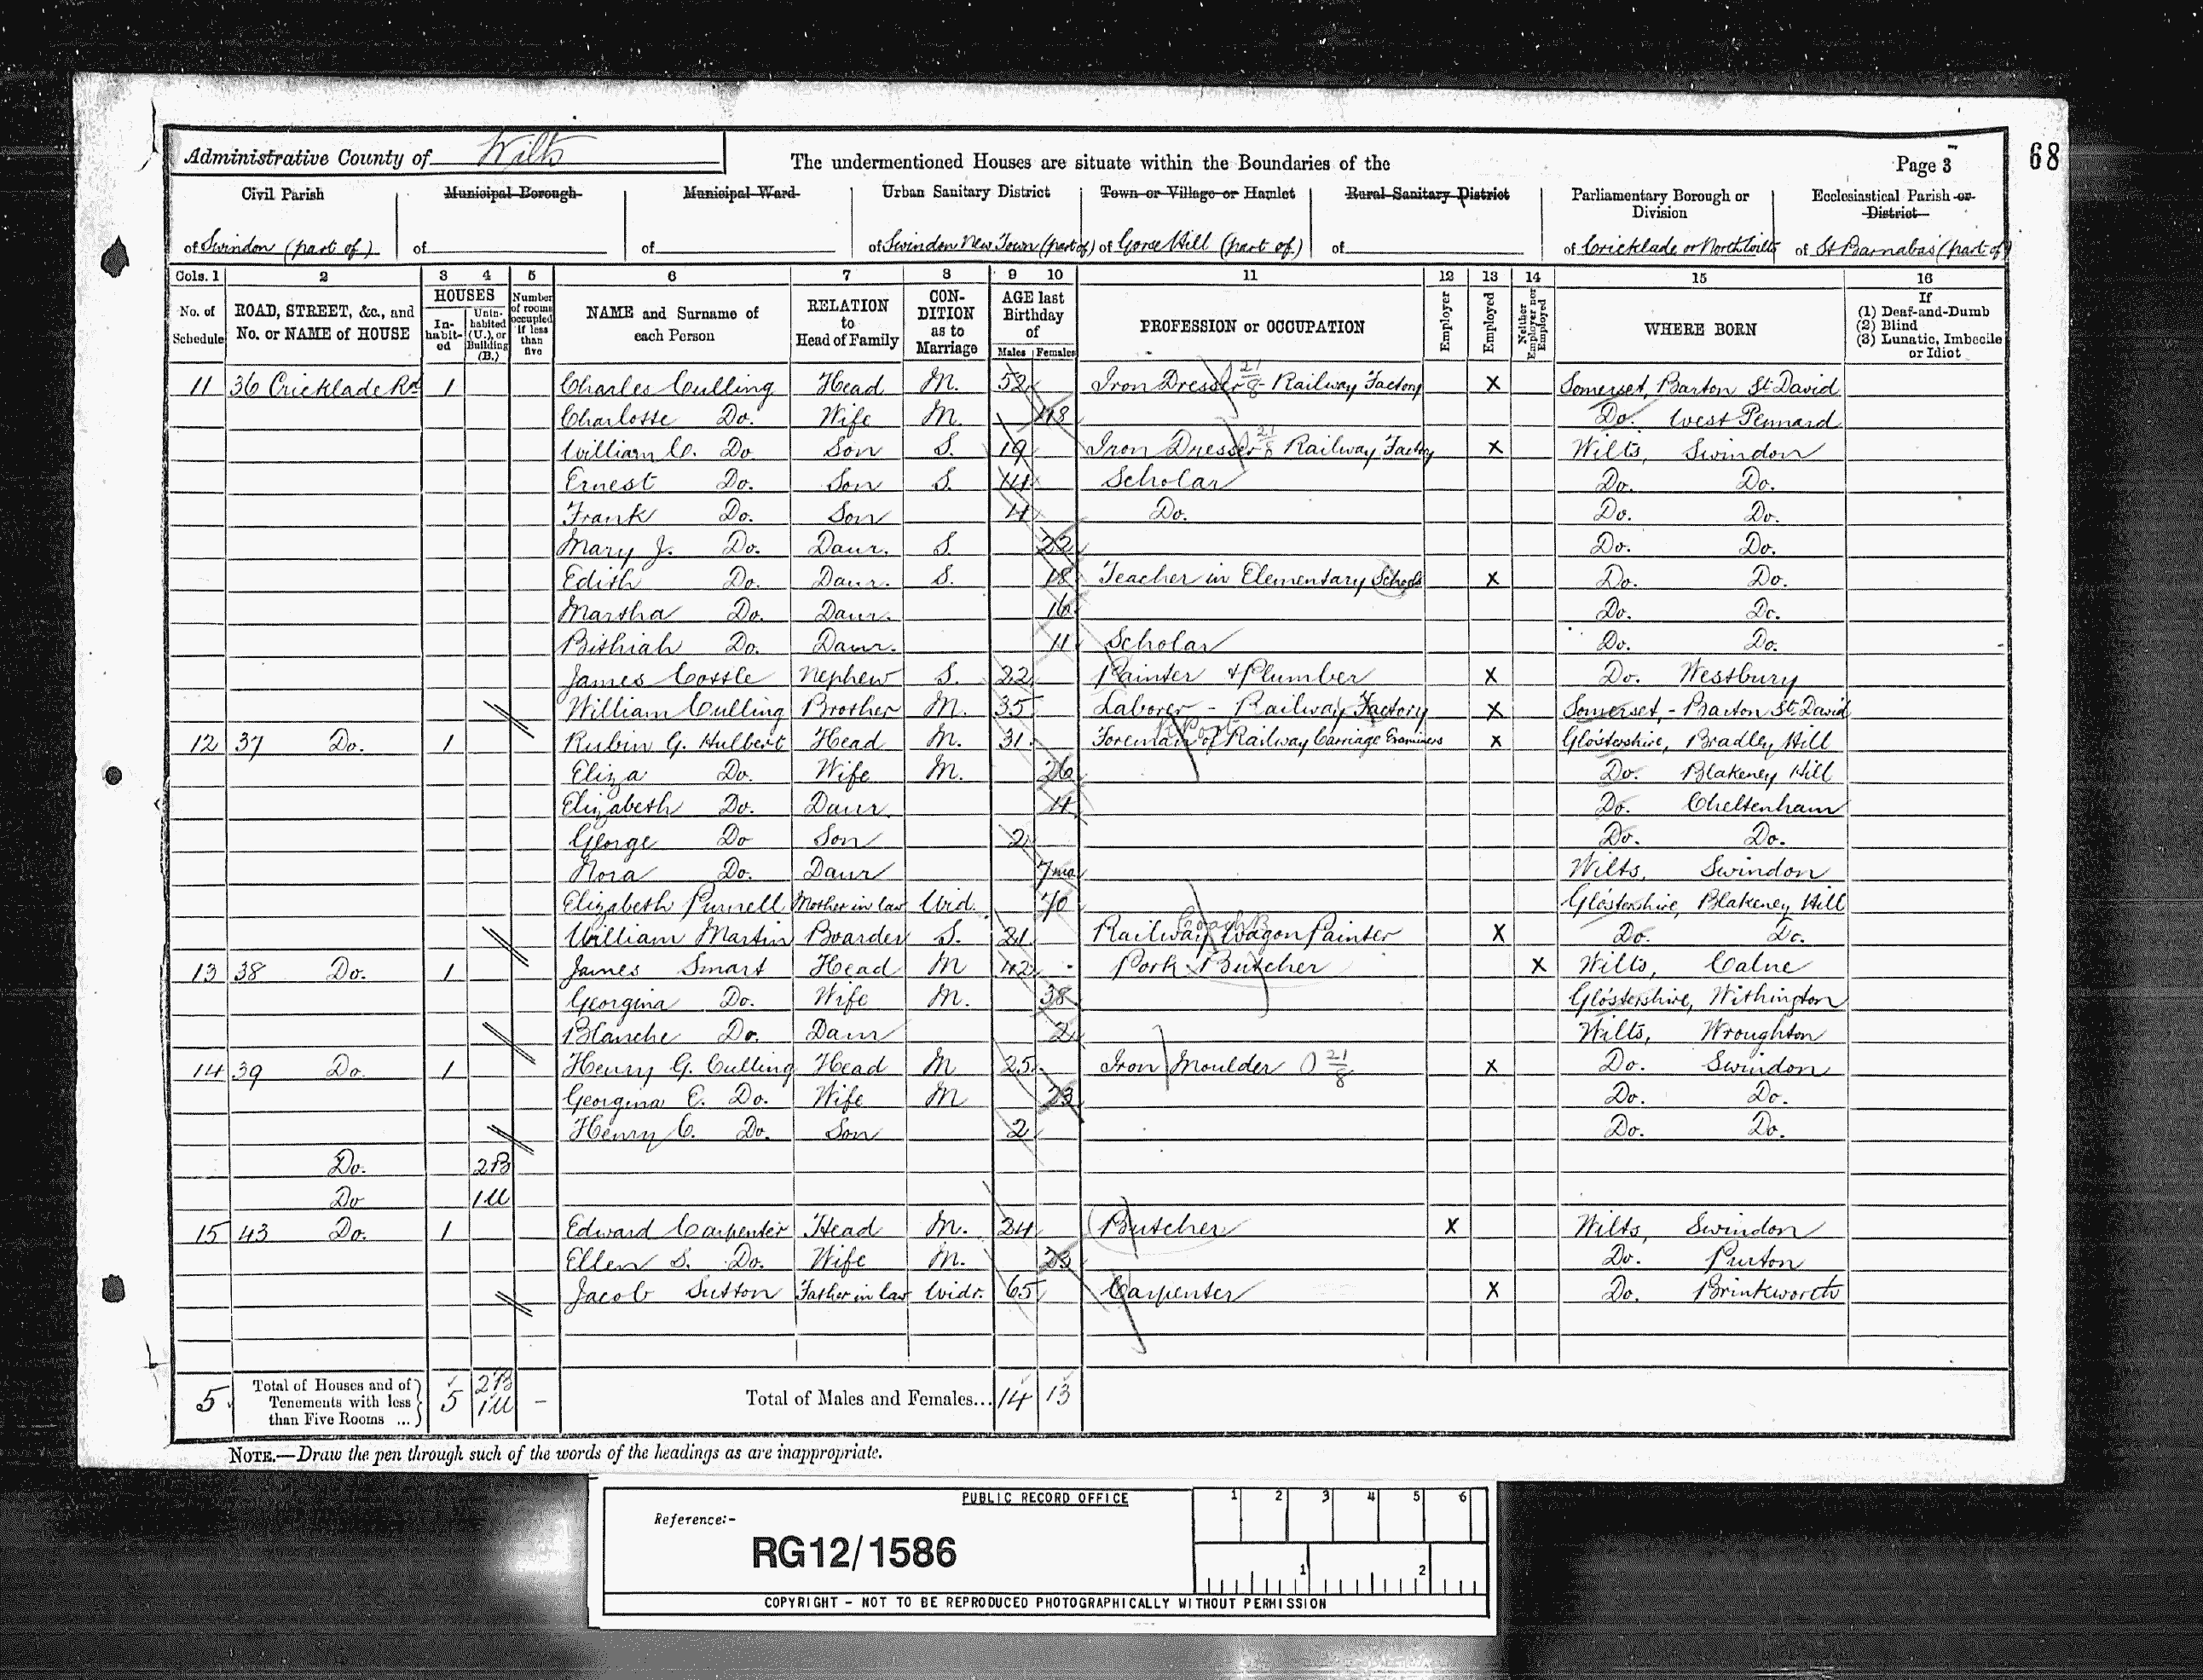 Administrative County of Wilts
The undermentioned Houses are situate within the Boundaries of the
Page 3
68
Civil Parish
of Swindon (part of)
Municipal Borough
of
Municipal Ward
of
Urban Sanitary District
of Swindon New Town (part of)
Town or Village or Hamlet
of Gorse Hill (part of)
Rural Sanitary District
of
Parliamentary Borough or Division
of Cricklade or North Wilts
Ecclesiastical Parish or District
of St Barnabas (part of)
Cols. 1 2 3 4 5 6 7 8 9 10 11 12 13 14 15 16
No. of Schedule
ROAD, STREET, &c., and No. or NAME of HOUSE
HOUSES
In-habit-ed
Unin-habited (U.), or Building (B.)
Number of rooms occupied if less than five
NAME and Surname of each Person
RELATION to Head of Family
CON-DITION as to Marriage
AGE last Birthday of
Males Females
PROFESSION or OCCUPATION
Employer
Employed
Neither Employer nor Employed
WHERE BORN
If
(1) Deaf-and-Dumb
(2) Blind
(3) Lunatic, Imbecile or Idiot
11 36 Cricklade Rd 1 Charles Culling Head M. 52 Iron Dresser 21/8 - Railway Factory X Somerset, Barton St David
Charlotte Do. Wife M. 48 Do. West Pennard
William C. Do Son S. 19 Iron Dresser 21/8 Railway Factory X Wilts, Swindon
Ernest Do. Son S. 14 Scholar Do. Do.
Frank Do. Son 4 Do. Do. Do.
Mary J. Do. Daur. S. 22 Do. Do.
Edith Do. Daur. S. 18 Teacher in Elementary Schools X Do. Do.
Martha Do. Daur. 16 Do. Do.
Bithiah Do. Daur. 11 Scholar Do. Do.
James Cottle Nephew S. 22 Painter & Plumber X Do. Westbury
William Culling Brother M. 35 Laborer - Railway Factory X Somerset, - Barton St David
12 37 Do. 1 Rubin G. Hulbert Head M. 31 Foreman of Railway Carriage Examiners X Glostershire, Bradley Hill
Eliza Do. Wife M. 26 Do. Blakeney Hill
Elizabeth Do. Daur. 4 Do. Cheltenham
George Do Son 2 Do. Do.
Nora Do. Daur 7 mo Wilts, Swindon
Elizabeth Purnell Mother in law Wid. 70 Glostershire, Blakeney Hill
William Martin Boarder S. 21 Railway Wagon Painter Coach B X Do. Do.
13 38 Do. 1 James Smart Head M 42 Pork Butcher X Wilts, Calne
Georgina Do. Wife M. 38 Glostershire, Withington
Blanche Do. Daur 2 Wilts, Wroughton
14 39 Do. 1 Henry G. Culling Head M 25 Iron Moulder 21/8 X Do. Swindon
Georgina E. Do. Wife M 23 Do. Do.
Henry C. Do. Son 2 Do. Do.
Do. 2B
Do 1U
15 43 Do. 1 Edward Carpenter Head M. 24 Butcher X Wilts, Swindon
Ellen S. Do. Wife M. 23 Do. Purton
Jacob Sutton Father in law Widr. 65 Carpenter X Do. Brinkworth
5 Total of Houses and of Tenements with less than Five Rooms ... 5 2B 1U - Total of Males and Females... 14 13
NOTE.—Draw the pen through such of the words of the headings as are inappropriate.
PUBLIC RECORD OFFICE
1 2 3 4 5 6
Reference:-
RG12/1586
1 2
COPYRIGHT - NOT TO BE REPRODUCED PHOTOGRAPHICALLY WITHOUT PERMISSION